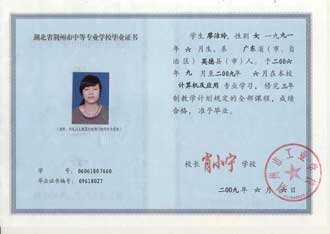 湖北省荆州市中等专业学校毕业证书
学 号: 06061807660
毕业证书编号: 09618027
学生廖洁玲，性别女一九九一
年 六 月生，系 广东省(市、自
治区) 英德县(市)人。于二00六
年 九 月至二00九年 六月在本校
计算机及应用 专业学习，修完三年
制教学计划规定的全部课程，成绩
合格，准予毕业。
校长 肖小宁 学校
二00九年 六 月 六 日